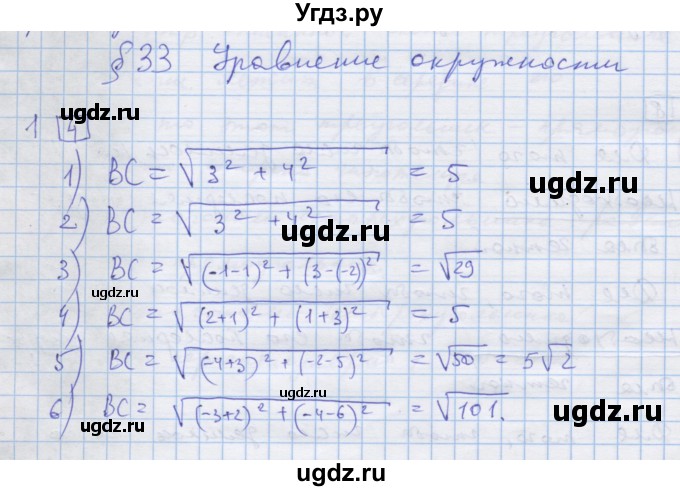 Угдз.ру
§ 33 Уравнение окружности
ugdz.ru
1 4
ugdz.ru
1) BC = √(3² + 4²) = 5
ugdz.ru
2) BC = √(3² + 4²) = 5
ugdz.ru
3) BC = √((-1-1)² + (3-(-2)²) = √29
ugdz.ru
4) BC = √((2+1)² + (1+3)²) = 5
ugdz.ru
5) BC = √((-4+3)² + (-2-5)²) = √50 = 5√2
ugdz.ru
6) BC = √((-3+2)² + (-4-6)²) = √101.
ugdz.ru
ugdz.ru
ugdz.ru